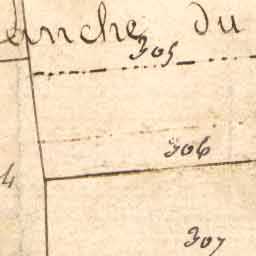 anche du
305
306
4
307